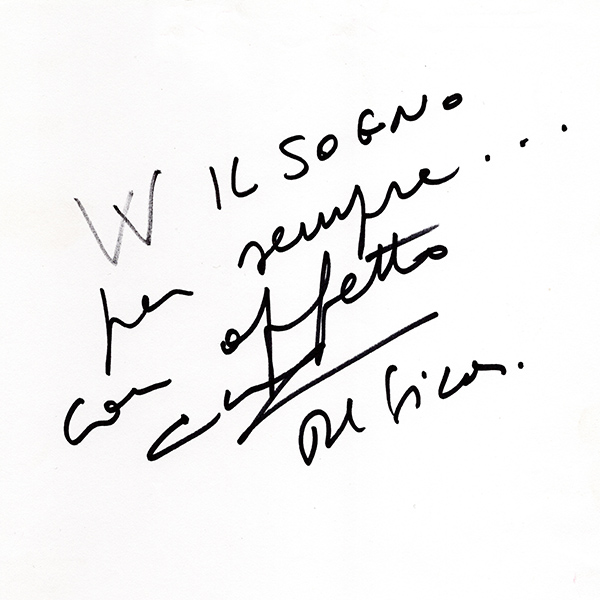 W IL SOGNO
per sempre...
con affetto